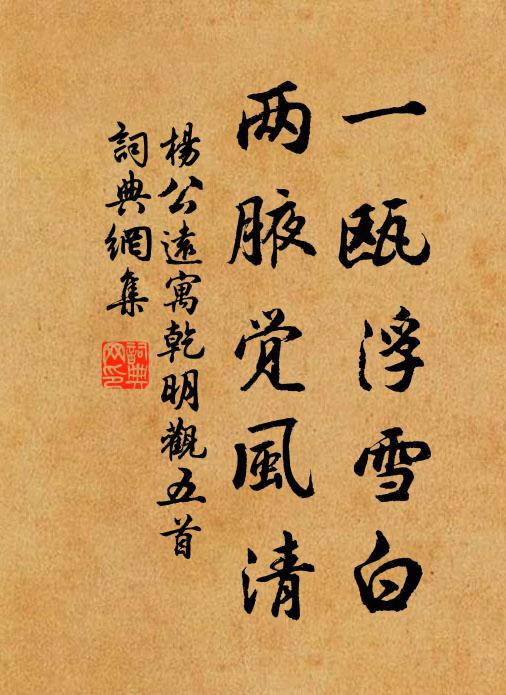 一瓯浮雪白
两腋觉風清
楊公遠寓乾明觀五首
詞典網集
詞典网印